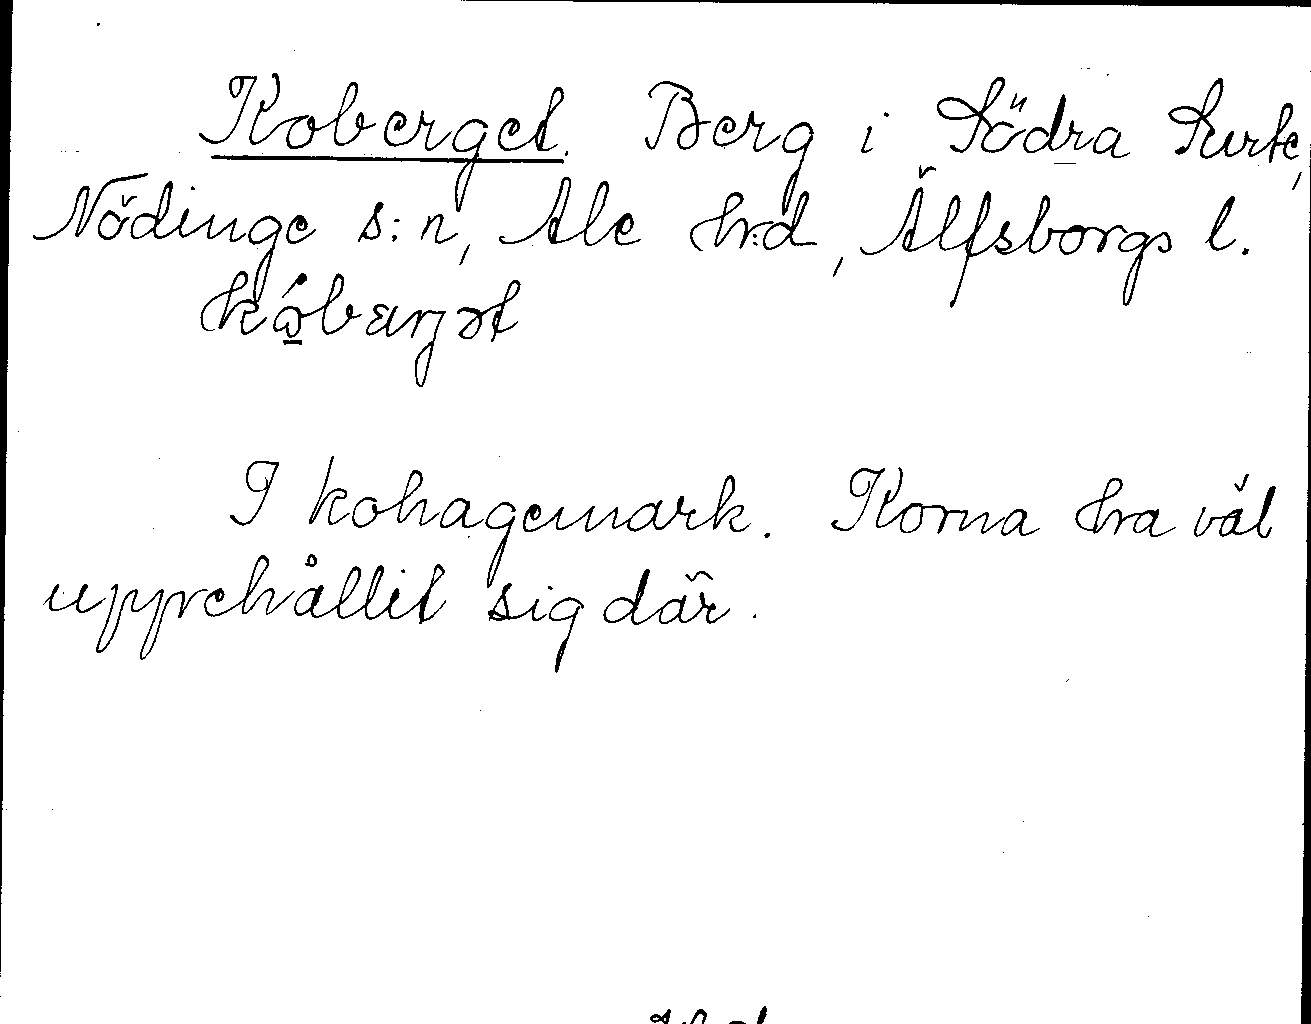 Koberget. Berg i Södra Surte,
Nödinge s:n, Ale hrd, Älfsborgs l.
I kohagemark. Korna ha väl
uppehållit sig där.